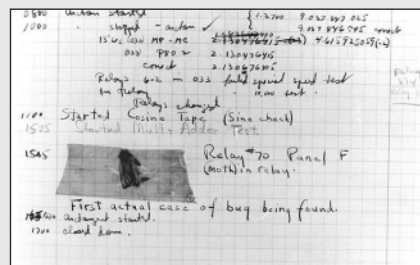 0800 Antan started
1000 " stopped - antan ✓
{ 1.2700 9.037 847 025
9.037 846 995 correct
13" UC (032) MP - MC 2.130476415 4.615925059(-2)
(033) PRO 2 2.130476415
correct 2.130676415
Relays 6-2 in 033 failed special speed test
in Relay " 11.000 test.
Relays changed
1100 Started Cosine Tape (Sine check)
1525 Started Mult+Adder Test.
1545 Relay #70 Panel F
(moth) in relay.
First actual case of bug being found.
antangent started.
1700 closed down.